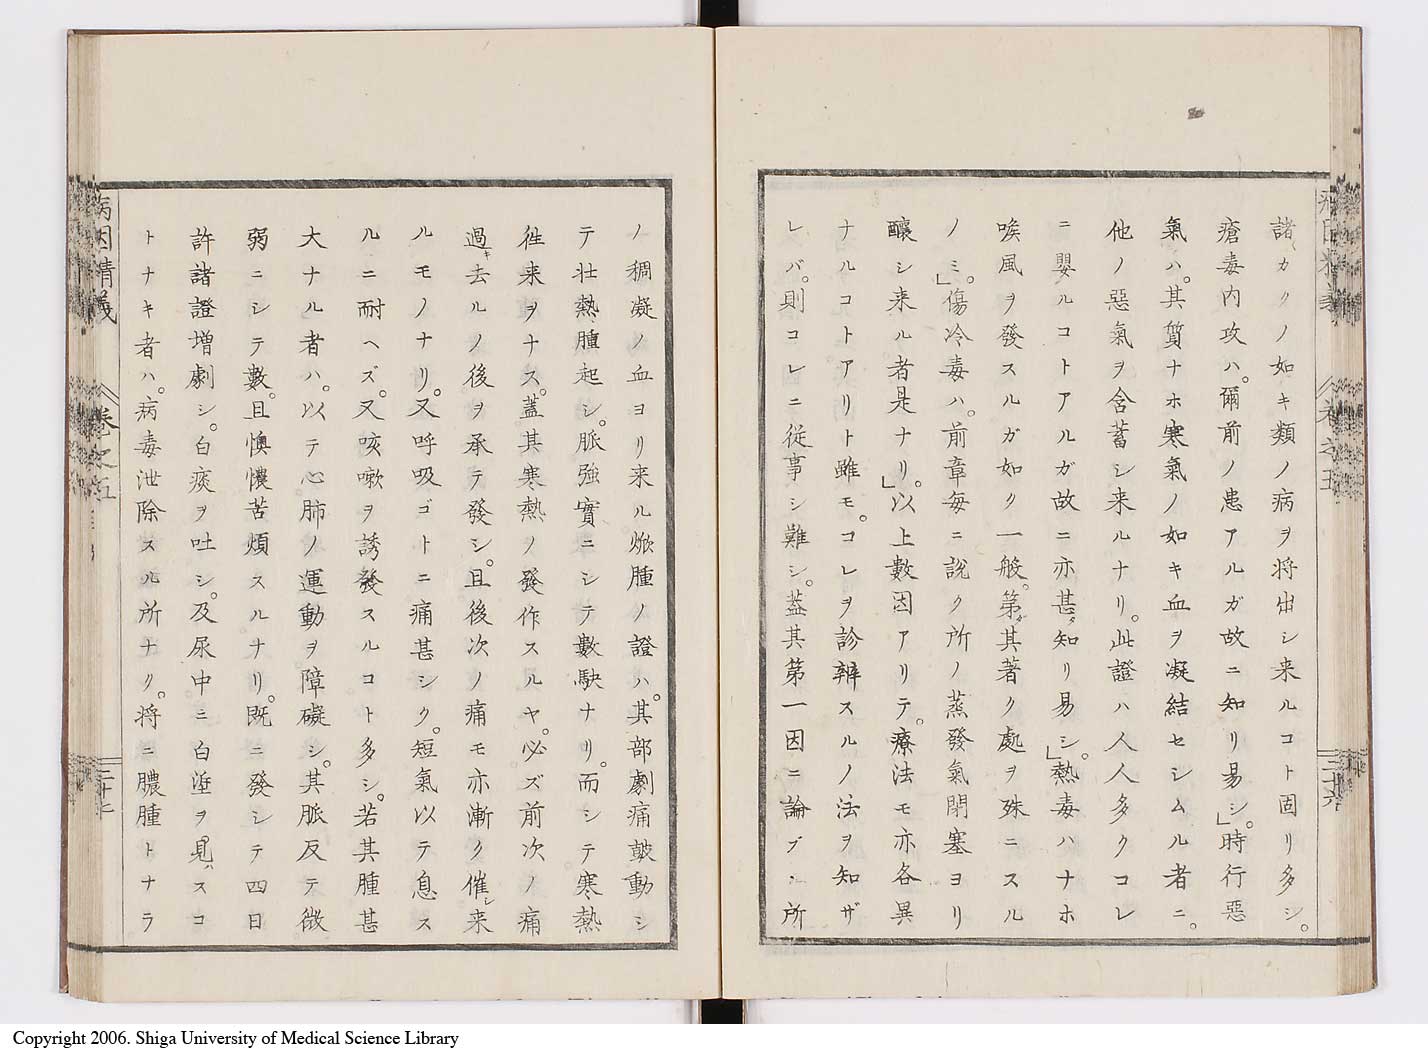 諸〻カクノ如キ類ノ病ヲ将出シ来ルコト固リ多シ。
瘡毒内攻ハ。爾前ノ患アルガ故ニ知リ易シ。」時行惡
氣ハ。其質ナホ寒氣ノ如キ血ヲ凝結セシムル者ニ。
他ノ惡氣ヲ含蓄シ来ルナリ。此證ハ人人多クコレ
ニ嬰ルコトアルガ故ニ亦甚ダ知リ易シ。」熱毒ハナホ
喉風ヲ發スルガ如ク一般。第其著ク處ヲ殊ニスル
ノミ。」傷冷毒ハ。前章毎ニ說ク所ノ蒸發氣閉塞ヨリ
釀シ来ル者是ナリ。」以上數因アリテ。療法モ亦各異
ナルコトアリト雖モ。コレヲ診辨スルノ法ヲ知ザ
レバ。則コレニ従事シ難シ。蓋其第一因ニ論ズル所
病因精義
卷之五
三十六
ノ稠凝ノ血ヨリ来ル焮腫ノ證ハ。其部劇痛皷動シ
テ壮熱腫起シ。脈強實ニシテ數駃ナリ。而シテ寒熱
徃来ヲナス。蓋其寒熱ノ發作スルヤ。必ズ前次ノ痛
過キ去ルノ後ヲ承テ發シ。且後次ノ痛モ亦漸ク催シ来
ルモノナリ。又呼吸ゴトニ痛甚シク。短氣以テ息ス
ルニ耐ヘズ。又咳嗽ヲ誘發スルコト多シ。若其腫甚
大ナル者ハ。以テ心肺ノ運動ヲ障礙シ。其脈反テ微
弱ニシテ數。且懊憹苦煩スルナリ。既ニ發シテ四日
許諸證増劇シ。白痰ヲ吐シ。及尿中ニ白垽ヲ。見ハスコ
トナキ者ハ。病毒泄除スル所ナク。将ニ膿腫トナラ
病因精義
卷之五
三十七
Copyright 2006. Shiga University of Medical Science Library